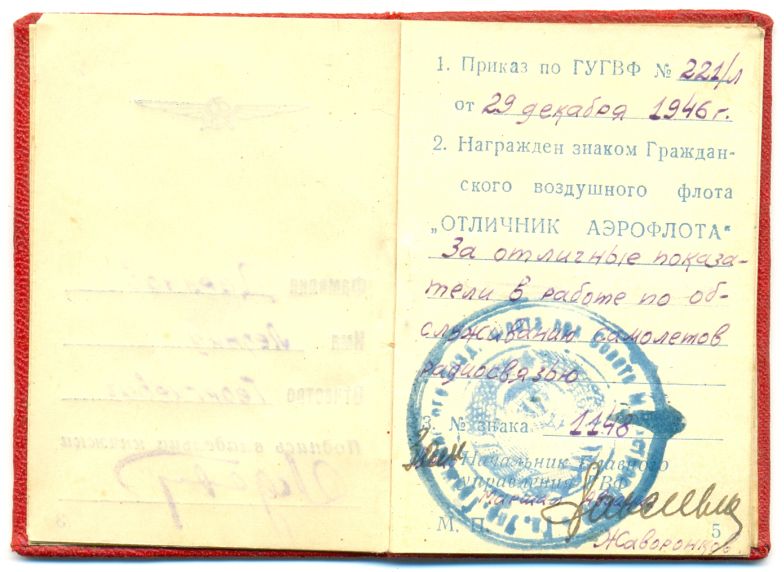 1. Приказ по ГУГВФ № 221/л
от 29 декабря 1946 г.
2. Награжден знаком Граждан-
ского воздушного флота
„ОТЛИЧНИК АЭРОФЛОТА“
За отличные показа-
тели в работе по об-
служиванию самолетов
радиосвязью
3. № знака 1148
Начальник Главного
управления ГВФ
Маршал авиации
М. П.
Жаворонков
5
Фамилия
Имя
Отчество
Подпись владельца книжки
3